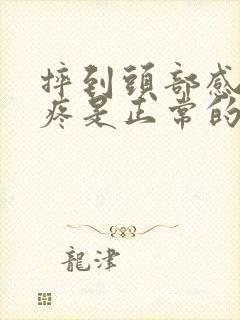 摔到頭部感
疼是正常的
龍津